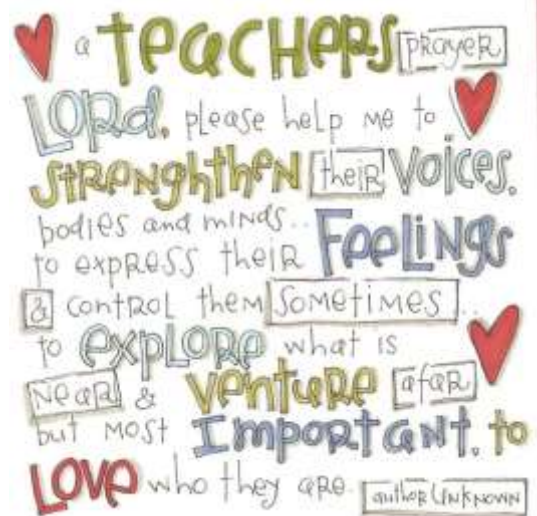 a TEACHERS PRAYER
LORD, please help me to
STRENGHTHEN their VOICES,
bodies and minds..
to express their Feelings
& control them sometimes..
to explore what is
near & venture afar
but most Important, to
LOVE who they are.
author UNKNOWN